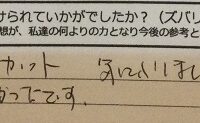 けられていかがでしたか？（ズバリ
想が、私達の何よりの力となり今後の参考と
カット 気に入りまし
かったです。